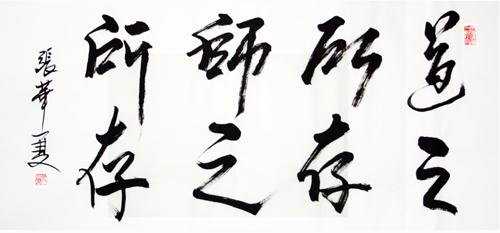 道之
所存
師之
所存
張華夏